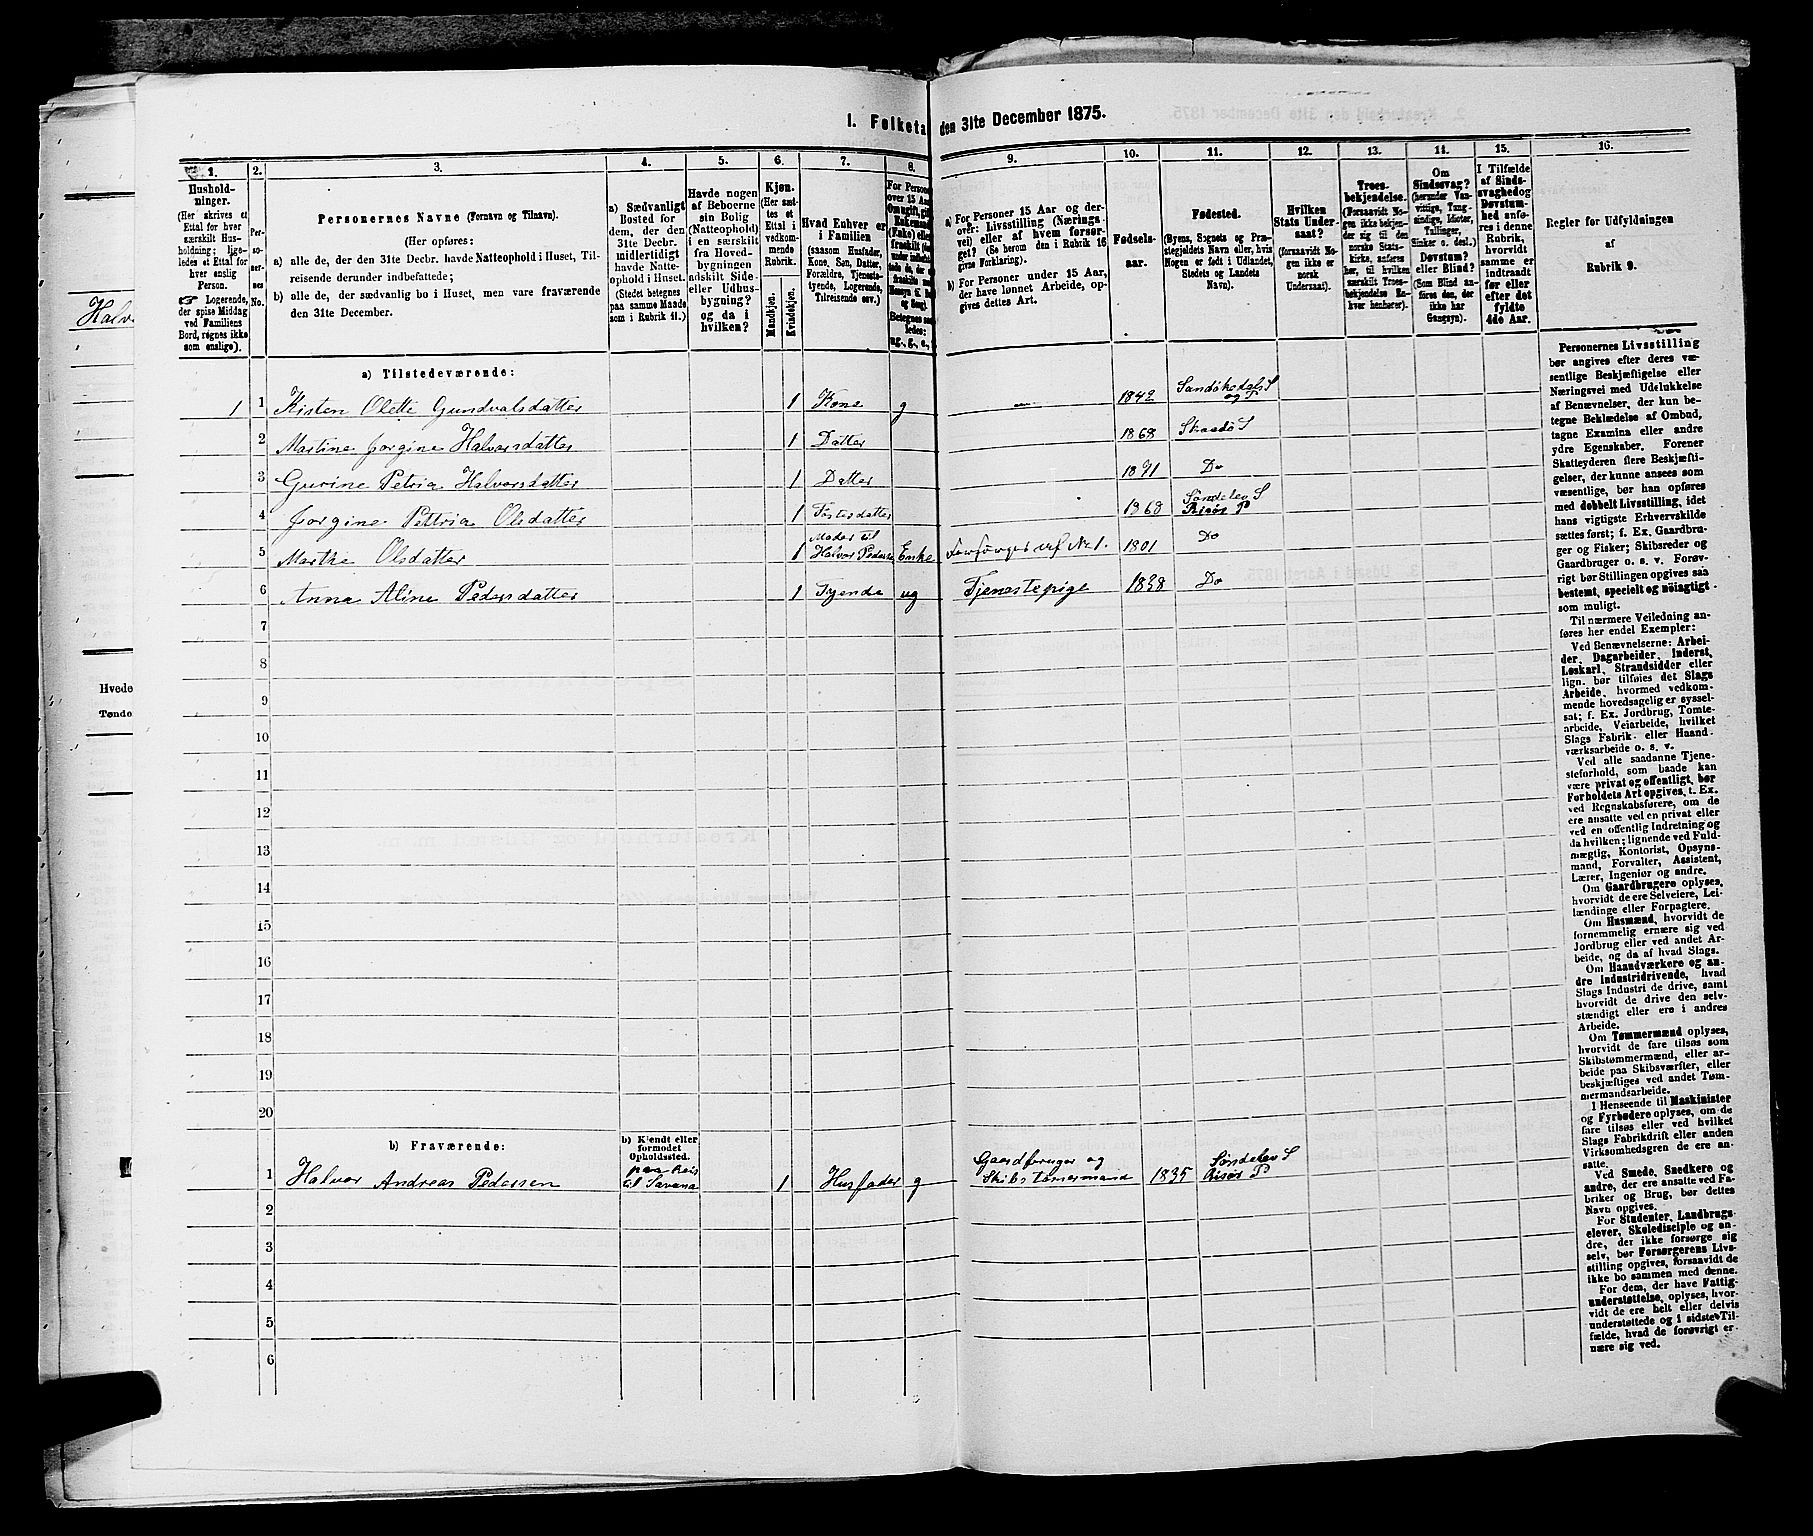 I. Folketa den 31te December 1875.
1. 2. 3. 4. 5. 6. 7. 8. 9. 10. 11. 12. 13. 14. 15. 16.
Hushold-
ninger.
(Her skrives et
Ettal for hver
særskilt Hus-
holdning; lige-
ledes et Ettal for
hver enslig
Person.
☞ Logerende,
der spise Middag
ved Familiens
Bord, regnes ikke
som enslige).
Per-
so-
ner-
nes
No.
Personernes Navne (Fornavn og Tilnavn).
(Her opføres:
a) alle de, der den 31te Decbr. havde Natteophold i Huset, Til-
reisende derunder indbefattede;
b) alle de, der sædvanlig bo i Huset, men vare fraværende
den 31te December.
a) Sædvanligt
Bosted for
dem, der den
31te Decbr.
midlertidigt
havde Natte-
ophold i Huset.
(Stedet betegnes
paa samme Maade
som i Rubrik 11.)
Havde nogen
af Beboerne
sin Bolig
(Natteophold)
i en særskilt
fra Hoved-
bygningen
adskilt Side
eller Udhus-
bygning?
og da i
hvilken?
Kjøn.
(Her sæt-
tes et
Ettal i
vedkom-
mende
Rubrik.
Mandkjøn.
Kvindekjøn.
Hvad Enhver er
i Familien
(saasom Husfader,
Kone, Søn, Datter,
Forældre, Tjeneste-
tyende, Logerende,
Tilreisende osv.)
a) For Personer 15 Aar og der-
over: Livsstilling (Nærings-
vei) eller af hvem forsør-
get? (Se herom den i Rubrik 16
givne Forklaring).
b) For Personer under 15 Aar,
der have lønnet Arbeide, op-
gives dettes Art.
Fødsels-
aar.
Fødested.
(Byens, Sognets og Præ-
stegjeldets Navn eller, hvis
Nogen er født i Udlandet,
Stedets og Landets
Navn).
Hvilken
Stats Under-
saat?
(forsaavidt No-
gen ikke er
norsk
Undersaat).
Troes-
bekjendelse.
(Forsaavidt No-
gen ikke bekjen-
der sig til den
norske Stats-
kirke, anføres
her, til hvilken
særskilt Troes-
bekjendelse En-
hver henhører).
Om
Sindssvag?
(herunder Van-
vittige, Tung-
sindige, Idioter,
Tullinger,
Sinker o. desl.).
Døvstum?
eller Blind?
(Som Blind an-
føres den, der
ikke har
Gangsyn).
I Tilfælde
af Sinds-
svaghed og
Døvstum-
hed anfø-
res i denne
Rubrik,
hvorvidt
samme er
indtraadt
før eller
efter det
fyldte
4de Aar.
Regler for Udfyldningen
af
Rubrik 9.
a) Tilstedeværende:
1 1 Kisten Olette Gundvalsdatter 1 Kone g 1842 Sandøkedals S og P
2 Martine Jorgine Halvorsdatter 1 Datter 1868 Skaadø S
3 Gurine Petria Halvorsdatter 1 Datter 1871 Do
4 Jorgine Pettria Olsdatter 1 Fostesdatter 1868 Söndelev S Risør P
5 Marthe Olsdatter 1 Moder til Halvor Pedersen Enke Forsørges af No 1. 1801 Do
6 Anna Aline Pedersdatter 1 Tyende ug Tjenestepige 1838 Do
7
8
9
10
11
12
13
14
15
16
17
18
19
20
b) Fraværende:
b) Kjendt eller
formodet
Opholdssted.
1 Halvor Andreas Pedersen paa Reis til Savana 1 Husfader g Gaardbruger og Skibstømermand 1835 Söndelev S Risør P
2
3
4
5
6
Personernes Livsstilling
bør angives efter deres væ-
sentlige Beskjæftigelse eller
Næringsvei med Udelukkelse
af Benævnelser, der kun be-
tegne Beklædelse af Ombud,
tagne Examina eller andre
ydre Egenskaber. Forener
Skatteyderen flere Beskjæfti-
gelser, der kunne ansees som
væsentlige, bør han opføres
med dobbelt Livsstilling, idet
hans vigtigste Erhvervskilde
sættes først; f. Ex. Gaardbru-
ger og Fisker; Skibsreder og
Gaardbruger o. s. v. Forøv-
rigt bør Stillingen opgives saa
bestemt, specielt og nøiagtigt
som muligt.
Til nærmere Veiledning an-
føres her endel Exempler:
Ved Benævnelserne: Arbei-
der, Dagarbeider, Inderst,
Løskarl, Strandsidder eller
lign. bør tilføies det Slags
Arbeide, hvormed vedkom-
mende hovedsagelig er syssel-
sat; f. Ex. Jordbrug, Tomte-
arbeide, Veiarbeide, hvilket
Slags Fabrik- eller Haand-
værksarbeide o. s. v.
Ved alle saadanne Tjene-
steforhold, som baade kan
være privat og offentligt, bør
Forholdets Art opgives, t. Ex.
ved Regnskabsførere, om de
ere ansatte ved en privat eller
ved en offentlig Indretning og
da hvilken; lignende ved Fuld-
mægtig, Kontorist, Opsyns-
mand, Forvalter, Assistent,
Lærer, Ingeniør og andre.
Om Gaardbrugere oplyses,
hvorvidt de ere Selveiere, Lei-
lændinge eller Forpagtere.
Om Husmænd, hvorvidt de
fornemmelig ernære sig ved
Jordbrug eller ved andet Ar-
beide, og da af hvad Slags.
Om Haandværkere og an-
dre Industridrivende, hvad
Slags Industri de drive, samt
hvorvidt de drive den selv-
stændigt eller ere i andres
Arbeide.
Om Tømmermænd oplyses,
hvorvidt de fare tilsøs som
Skibstømmermænd, eller ar-
beide paa Skibsværfter, eller
beskjæftiges ved andet Tøm-
mermandsarbeide.
I Henseende til Maskinister
og Fyrbødere oplyses, om de
fare tilsøs eller ved hvilket
Slags Fabrikdrift eller anden
Virksomhedsgren de ere an-
satte.
Ved Smede, Snedkere og
andre, der ere ansatte ved Fa-
briker og Brug, bør dettes
Navn opgives.
For Studenter, Landbrugs-
elever, Skoledisciple og an-
dre, der ikke forsørge sig
selv, bør Forsørgerens Livs-
stilling opgives, forsaavidt de
ikke bo sammen med denne.
For dem, der have Fattig-
understøttelse, oplyses, hvor-
vidt de ere helt eller delvis
understøttede og i sidste Til-
fælde, hvad de forøvrigt er-
nære sig ved.
Hvede
Tønde